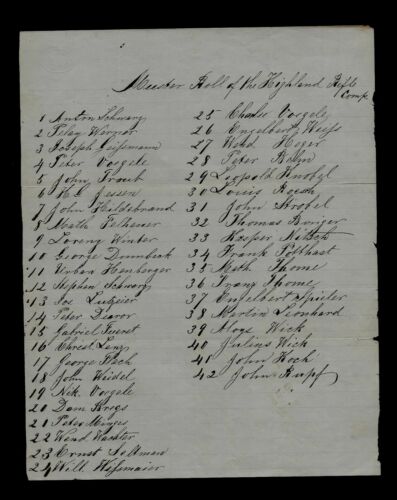 Muster Roll of the Highland Rifle
Comp
1 Anton Schwarz
2
3 Joseph
4 Peter Vorgele
5 John Traub
6 H. L. Jessen
7 John Hildebrand
8 Math
9 Lorenz Winter
10 George Dumbeck
11 Urban
12 Stephen Schwarz
13 Joe
14 Peter
15 Gabriel Feurst
16 Christ Lenz
17 George Bach
18 John Weidel
19 Nik. Vorgele
20 Dam Kregs
21 Peter Menges
22 Wend Wachter
23 Ernst Soltman
24 Will Wissmaier
25 Charlie Vorgele
26 Engelbert Weiss
27 Wend Heger
28 Peter Bohn
29 Leopold Knebel
30 Louis Roesch
31 John Strobel
32 Thomas Buriger
33 Kasper Nitsch
34 Frank Potthast
35 Math Thome
36 Franz Thome
37 Engelbert
38 Martin Leonhard
39 Aloge Wick
40 Julius Wick
40 John Koch
42 John Rupf